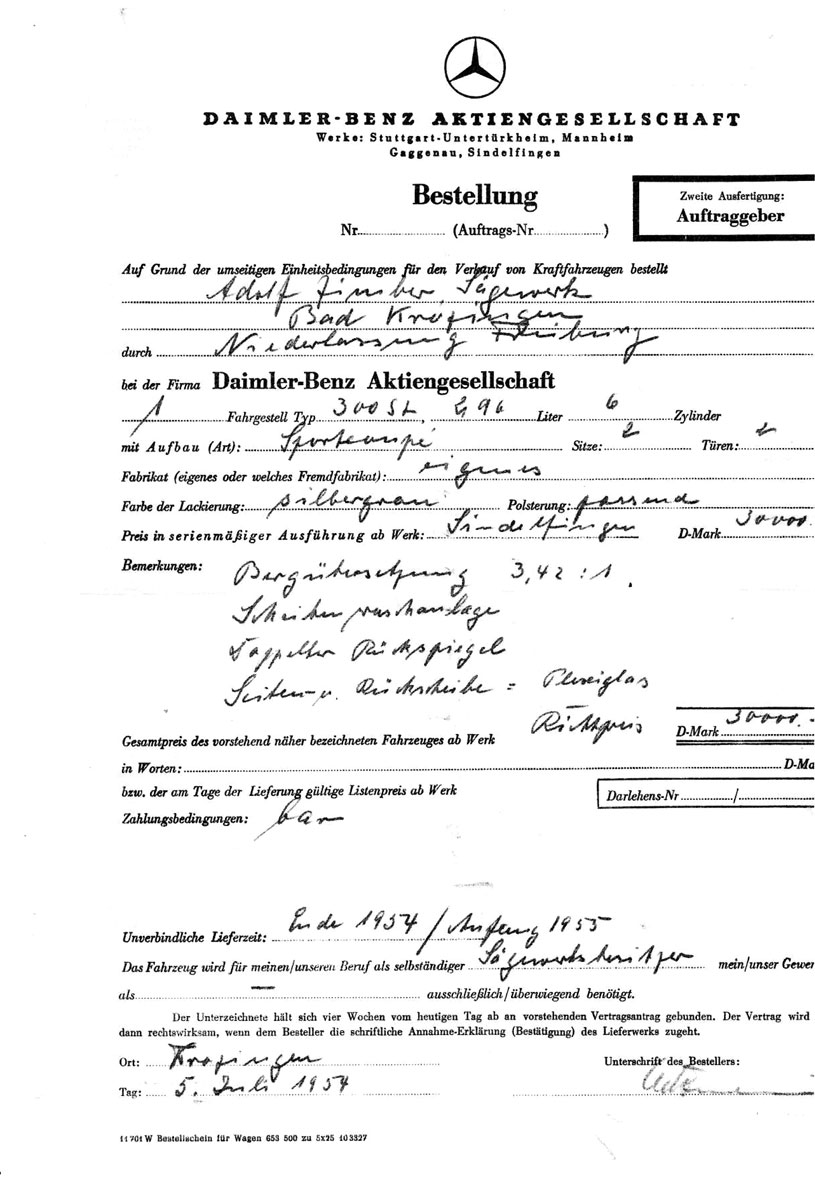 DAIMLER-BENZ AKTIENGESELLSCHAFT
Werke: Stuttgart-Untertürkheim, Mannheim
Gaggenau, Sindelfingen
Bestellung
Zweite Ausfertigung:
Auftraggeber
Nr. (Auftrags-Nr. )
Auf Grund der umseitigen Einheitsbedingungen für den Verkauf von Kraftfahrzeugen bestellt
Adolf Sägewerk
Bad Krozingen
durch Niederlassung Freiburg
bei der Firma Daimler-Benz Aktiengesellschaft
1 Fahrgestell Typ 300 SL, 2,996 Liter 6 Zylinder
mit Aufbau (Art): Sportcoupé Sitze: 2 Türen: 2
Fabrikat (eigenes oder welches Fremdfabrikat): eigenes
Farbe der Lackierung: silbergrau Polsterung: passend
Preis in serienmäßiger Ausführung ab Werk: Sindelfingen D-Mark 30000.
Bemerkungen: Bergübersetzung 3,42 : 1.
Scheibenwaschanlage
Doppelter Rückspiegel
Seiten- u. Rückscheibe = Plexiglas
Richtpreis
Gesamtpreis des vorstehend näher bezeichneten Fahrzeuges ab Werk D-Mark 30000.-
in Worten: D-Ma
bzw. der am Tage der Lieferung gültige Listenpreis ab Werk
Darlehens-Nr. /
Zahlungsbedingungen: bar
Unverbindliche Lieferzeit: Ende 1954 / Anfang 1955
Das Fahrzeug wird für meinen/unseren Beruf als selbständiger Sägewerksbesitzer mein/unser Gewer
als — ausschließlich/überwiegend benötigt.
Der Unterzeichnete hält sich vier Wochen vom heutigen Tag ab an vorstehenden Vertragsantrag gebunden. Der Vertrag wird
dann rechtswirksam, wenn dem Besteller die schriftliche Annahme-Erklärung (Bestätigung) des Lieferwerks zugeht.
Ort: Krozingen Unterschrift des Bestellers:
Tag: 5. Juli 1954
11701 W Bestellschein für Wagen 653 500 zu 5x25 103327